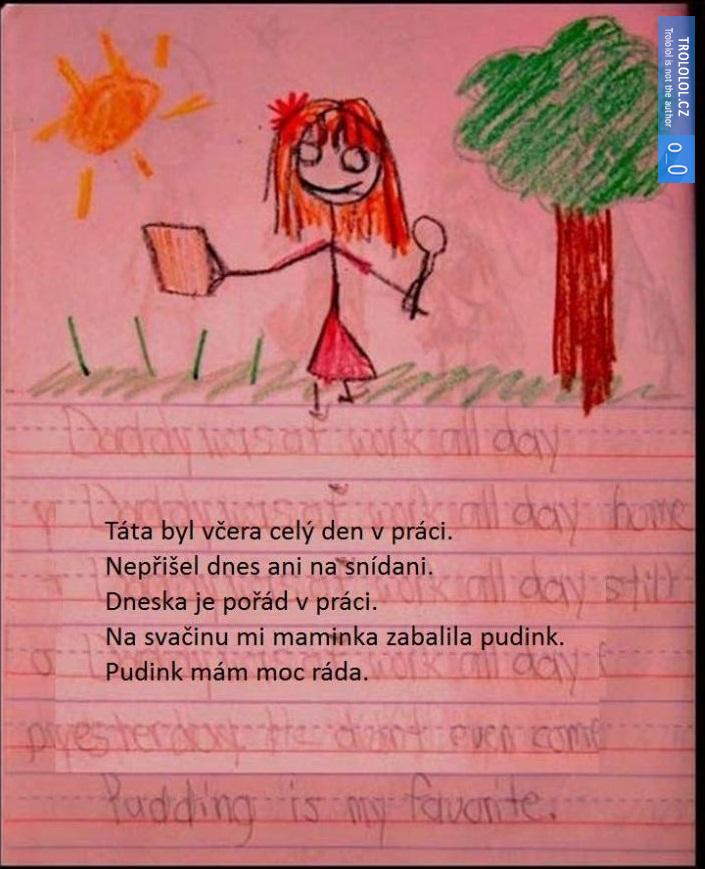 TROLOLOL.CZ
Trololol is not the author
o_0
Daddy was at work all day
Daddy was at work all day home
Táta byl včera celý den v práci.
Nepřišel dnes ani na snídani.
work all day still
Dneska je pořád v práci.
Na svačinu mi maminka zabalila pudink.
work all day
Pudink mám moc ráda.
yesterday He didn't even come
Pudding is my favorite.